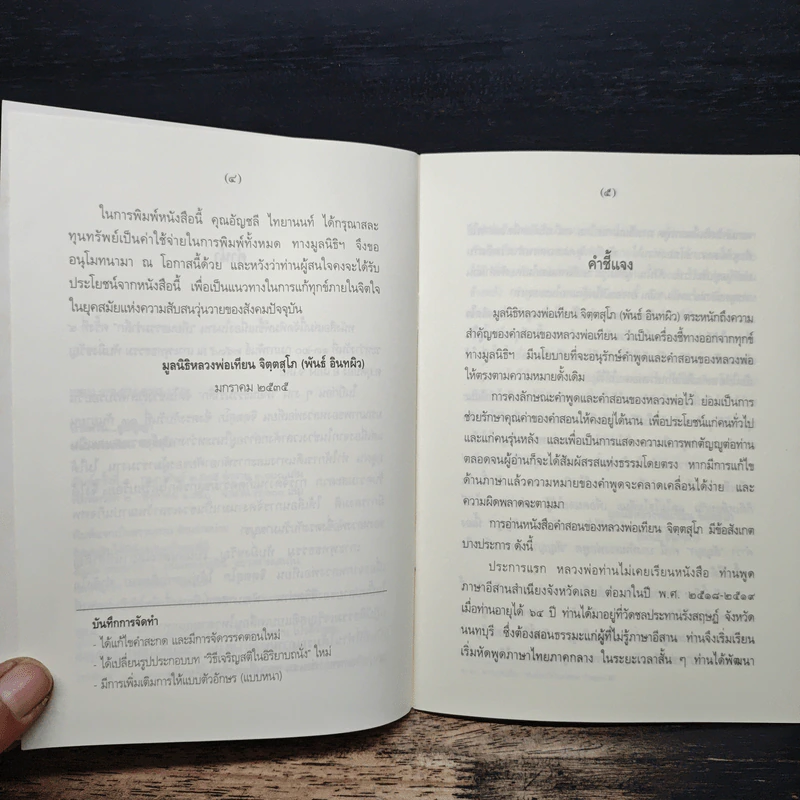 (๔)
ในการพิมพ์หนังสือนี้ คุณอัญชลี ไทยานนท์ ได้กรุณาสละ
ทุนทรัพย์เป็นค่าใช้จ่ายในการพิมพ์ทั้งหมด ทางมูลนิธิฯ จึงขอ
อนุโมทนามา ณ โอกาสนี้ด้วย และหวังว่าท่านผู้สนใจคงจะได้รับ
ประโยชน์จากหนังสือนี้ เพื่อเป็นแนวทางในการแก้ทุกข์ภายในจิตใจ
ในยุคสมัยแห่งความสับสนวุ่นวายของสังคมปัจจุบัน
มูลนิธิหลวงพ่อเทียน จิตฺตสุโภ (พันธ์ อินทผิว)
มกราคม ๒๕๓๕
บันทึกการจัดทำ
- ได้แก้ไขคำสะกด และมีการจัดวรรคตอนใหม่
- ได้เปลี่ยนรูปประกอบบท "วิธีเจริญสติในอิริยาบถนั่ง" ใหม่
- มีการเพิ่มเติมการให้แบบตัวอักษร (แบบหนา)
(๕)
คำชี้แจง
มูลนิธิหลวงพ่อเทียน จิตฺตสุโภ (พันธ์ อินทผิว) ตระหนักถึงความ
สำคัญของคำสอนของหลวงพ่อเทียน ว่าเป็นเครื่องชี้ทางออกจากทุกข์
ทางมูลนิธิฯ มีนโยบายที่จะอนุรักษ์คำพูดและคำสอนของหลวงพ่อ
ให้ตรงตามความหมายดั้งเดิม
การคงลักษณะคำพูดและคำสอนของหลวงพ่อไว้ ย่อมเป็นการ
ช่วยรักษาคุณค่าของคำสอนให้คงอยู่ได้นาน เพื่อประโยชน์แก่คนทั่วไป
และแก่คนรุ่นหลัง และเพื่อเป็นการแสดงความเคารพกตัญญูต่อท่าน
ตลอดจนผู้อ่านก็จะได้สัมผัสรสแห่งธรรมโดยตรง หากมีการแก้ไข
ด้านภาษาแล้วความหมายของคำพูดจะคลาดเคลื่อนได้ง่าย และ
ความผิดพลาดจะตามมา
การอ่านหนังสือคำสอนของหลวงพ่อเทียน จิตฺตสุโภ มีข้อสังเกต
บางประการ ดังนี้
ประการแรก หลวงพ่อท่านไม่เคยเรียนหนังสือ ท่านพูด
ภาษาอีสานสำเนียงจังหวัดเลย ต่อมาในปี พ.ศ. ๒๕๑๘-๒๕๑๙
เมื่อท่านอายุได้ ๖๔ ปี ท่านได้มาอยู่ที่วัดชลประทานรังสฤษฏ์ จังหวัด
นนทบุรี ซึ่งต้องสอนธรรมะแก่ผู้ที่ไม่รู้ภาษาอีสาน ท่านจึงเริ่มเรียน
เริ่มหัดพูดภาษาไทยภาคกลาง ในระยะเวลาสั้น ๆ ท่านได้พัฒนา